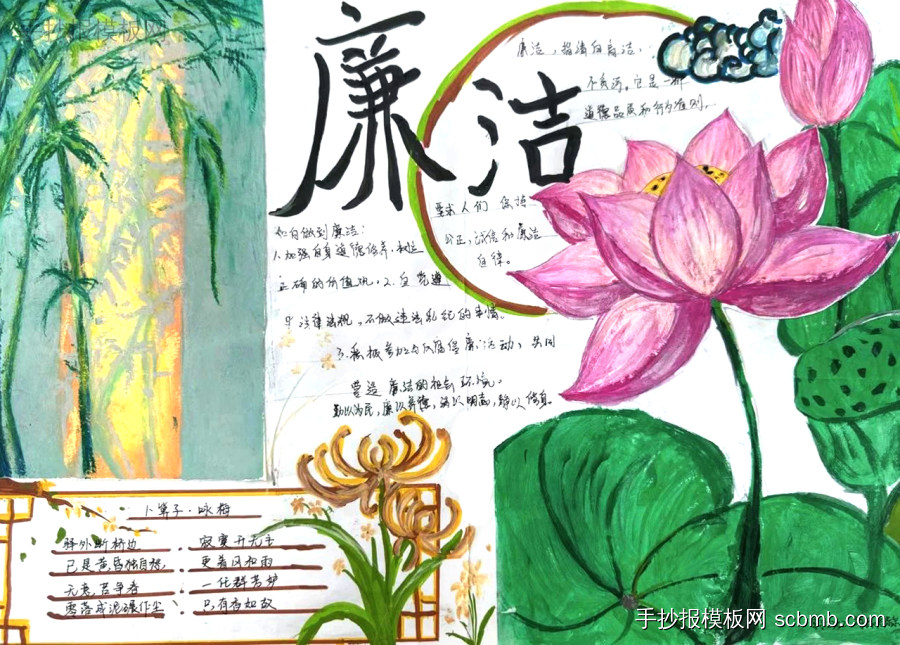 手抄报模板网
廉洁
廉洁，指清白高洁，
不贪污。它是一种
道德品质和行为准则。
要求人们 保持
公正，诚信和廉洁
自律。
如何做到廉洁：
1.加强自身道德修养，树立
正确的价值观，2.自觉遵
守法律法规，不做违法乱纪的事情。
3.积极参加 反腐倡廉活动，共同
营造廉洁的社会环境。
勤以为民，廉以养德，淡以明志，静以修身。
卜算子·咏梅
驿外断桥边， 寂寞开无主
已是黄昏独自愁， 更着风和雨
无意苦争春 一任群芳妒
零落成泥碾作尘 只有香如故
手抄报模板网 scbmb.com